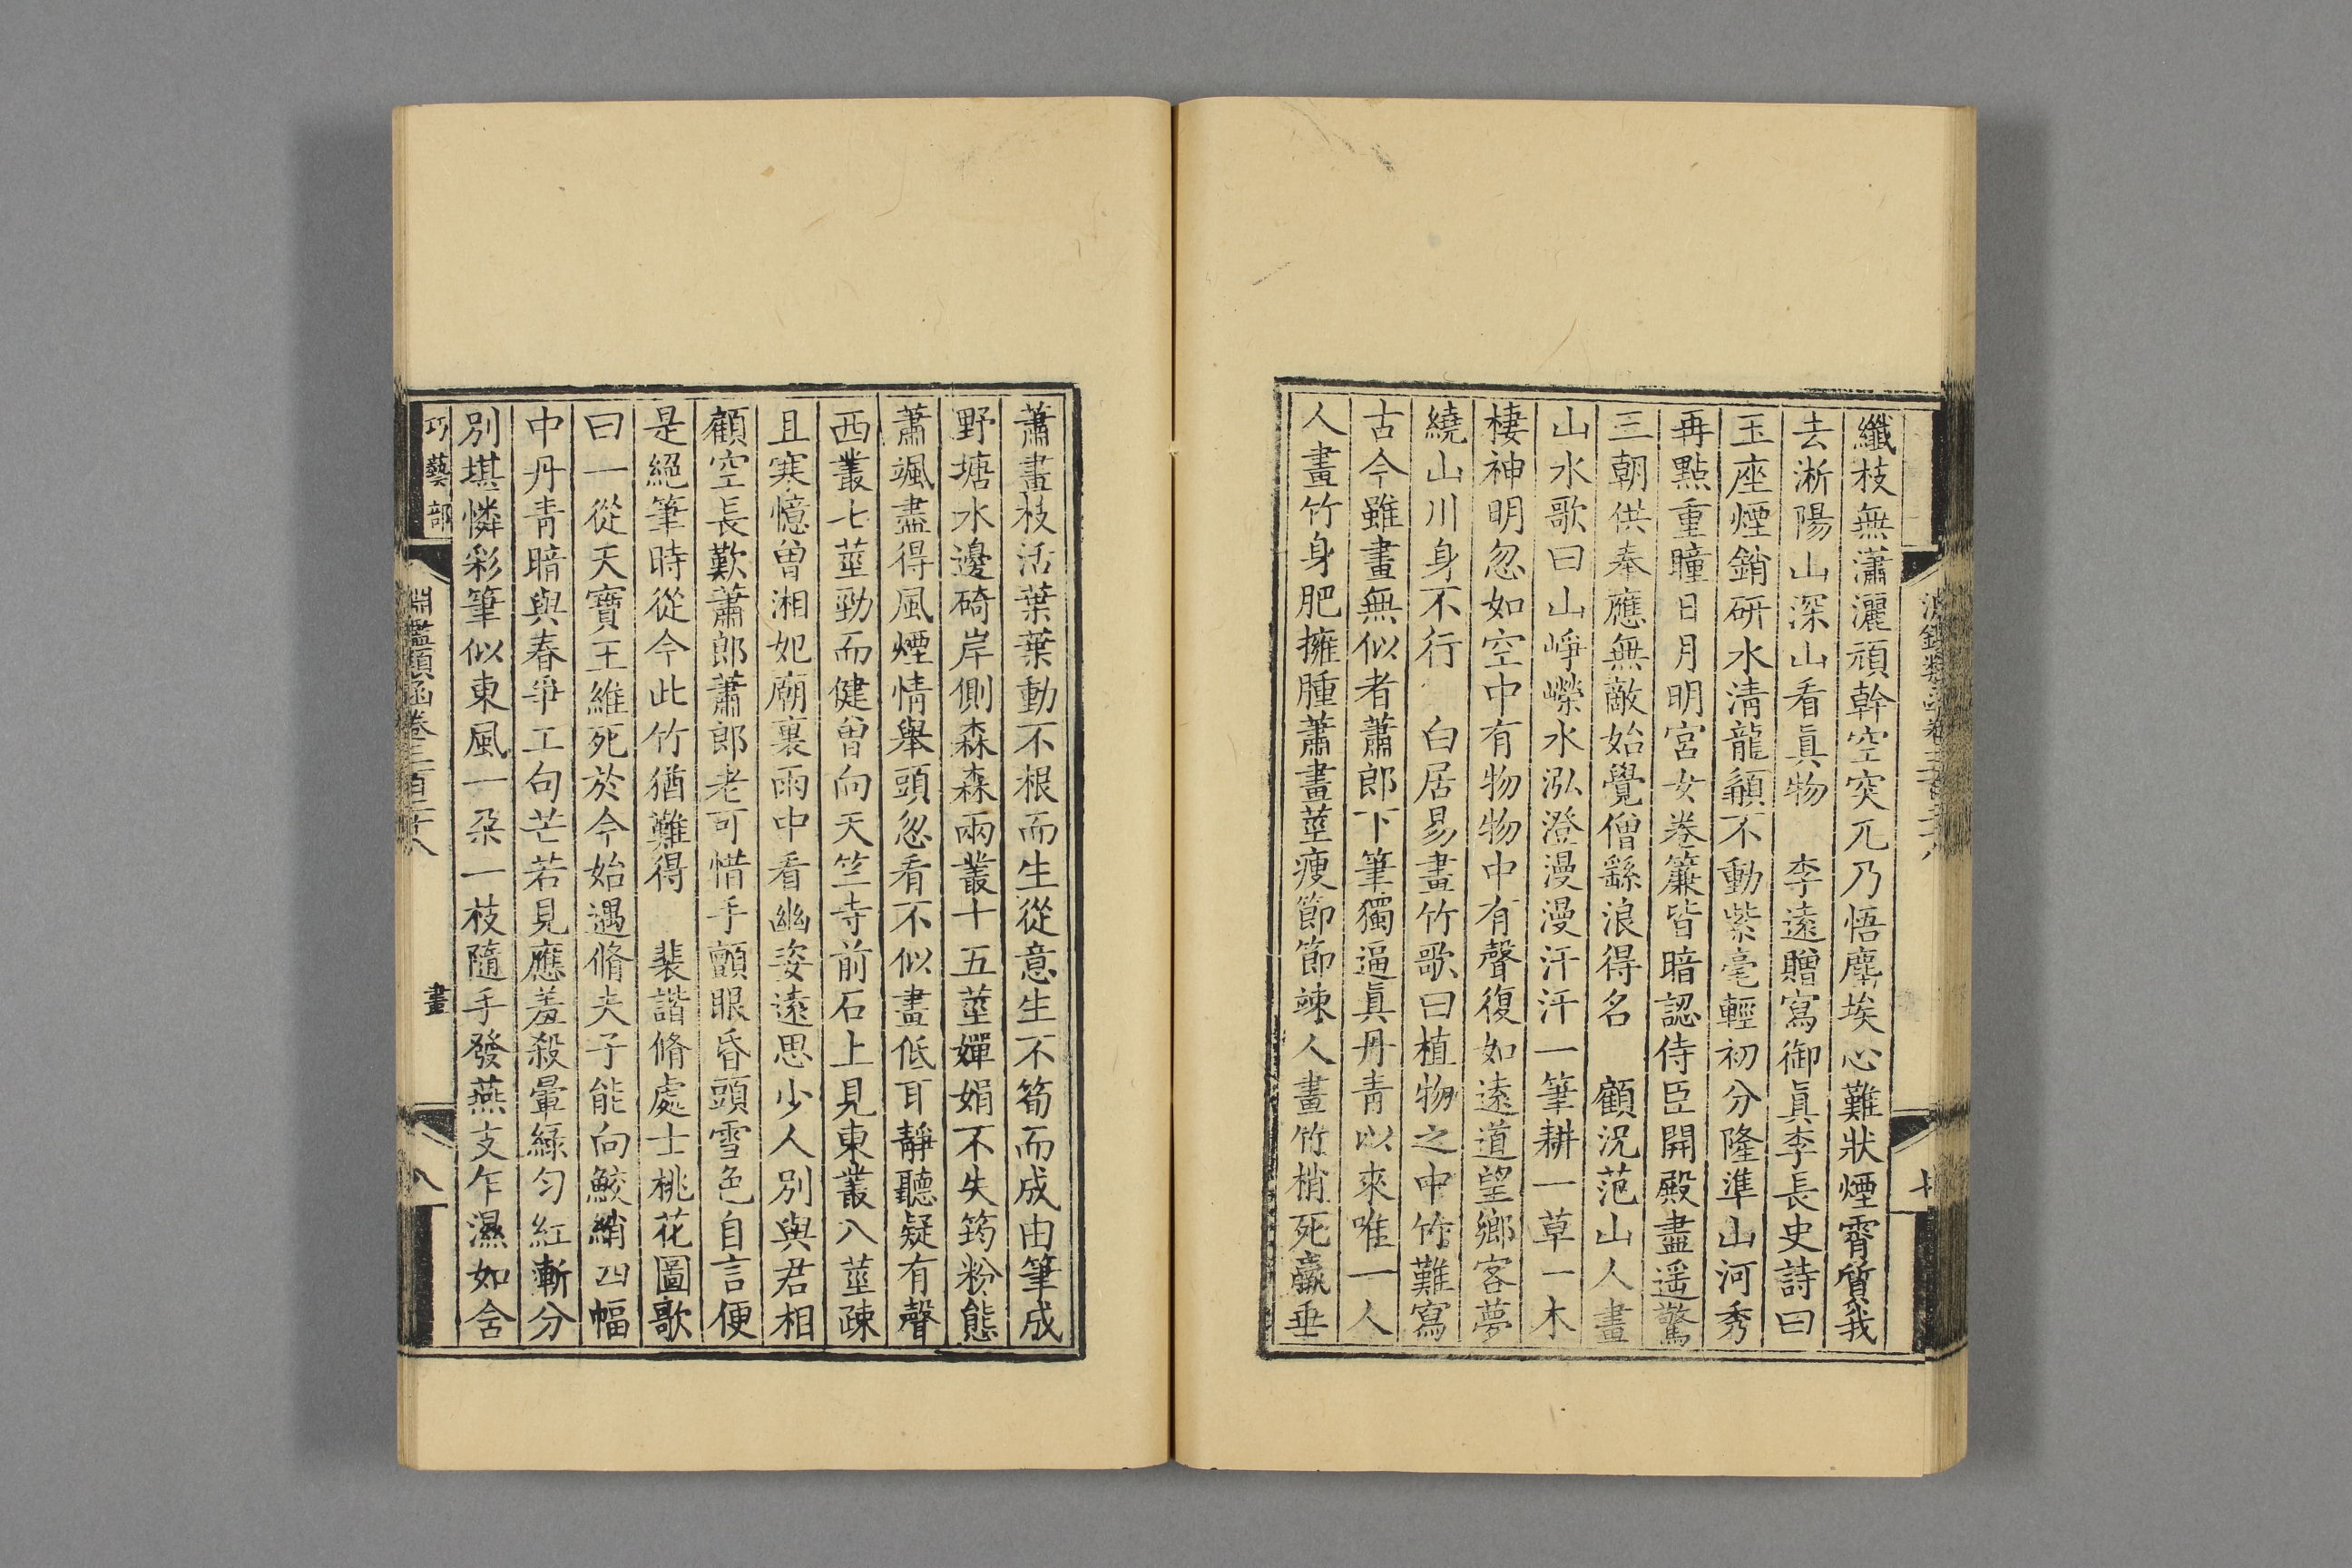 纖枝無瀟灑頑幹空突兀乃悟塵埃心難狀煙霄質我
去淅陽山深山看眞物　李遠贈寫御眞李長史詩曰
玉座煙銷硏水淸龍顙不動紫毫輕初分隆準山河秀
再點重瞳日月明宮女卷簾皆暗認侍臣開殿盡遥驚
三朝供奉應無敵始覺僧繇浪得名　顧況范山人畫
山水歌曰山崢嶸水泓澄漫漫汗汗一筆耕一草一木
棲神明忽如空中有物物中有聲復如遠道望鄉客夢
繞山川身不行　白居易畫竹歌曰植物之中竹難寫
古今雖畫無似者蕭郎下筆獨逼眞丹靑以來唯一人
人畫竹身肥擁腫蕭畫莖瘦節節竦人畫竹梢死羸垂
蕭畫枝活葉葉動不根而生從意生不筍而成由筆成
野塘水邊碕岸側森森兩叢十五莖嬋娟不失筠粉態
蕭颯盡得風煙情舉頭忽看不似畫低耳靜聽疑有聲
西叢七莖勁而健曾向天竺寺前石上見東叢八莖疎
且寒憶曾湘妃廟裏雨中看幽姿遠思少人別與君相
顧空長歎蕭郎蕭郎老可惜手顫眼昏頭雪色自言便
是絕筆時從今此竹猶難得　裴諧脩處士桃花圖歌
曰一從天寶王維死於今始遇脩夫子能向鮫綃四幅
中丹靑暗與春爭工句芒若見應羞殺暈綠勻紅漸分
別堪憐彩筆似東風一朶一枝隨手發燕支乍濕如含
巧藝部　淵鑑類函卷三百二十八　畫　八